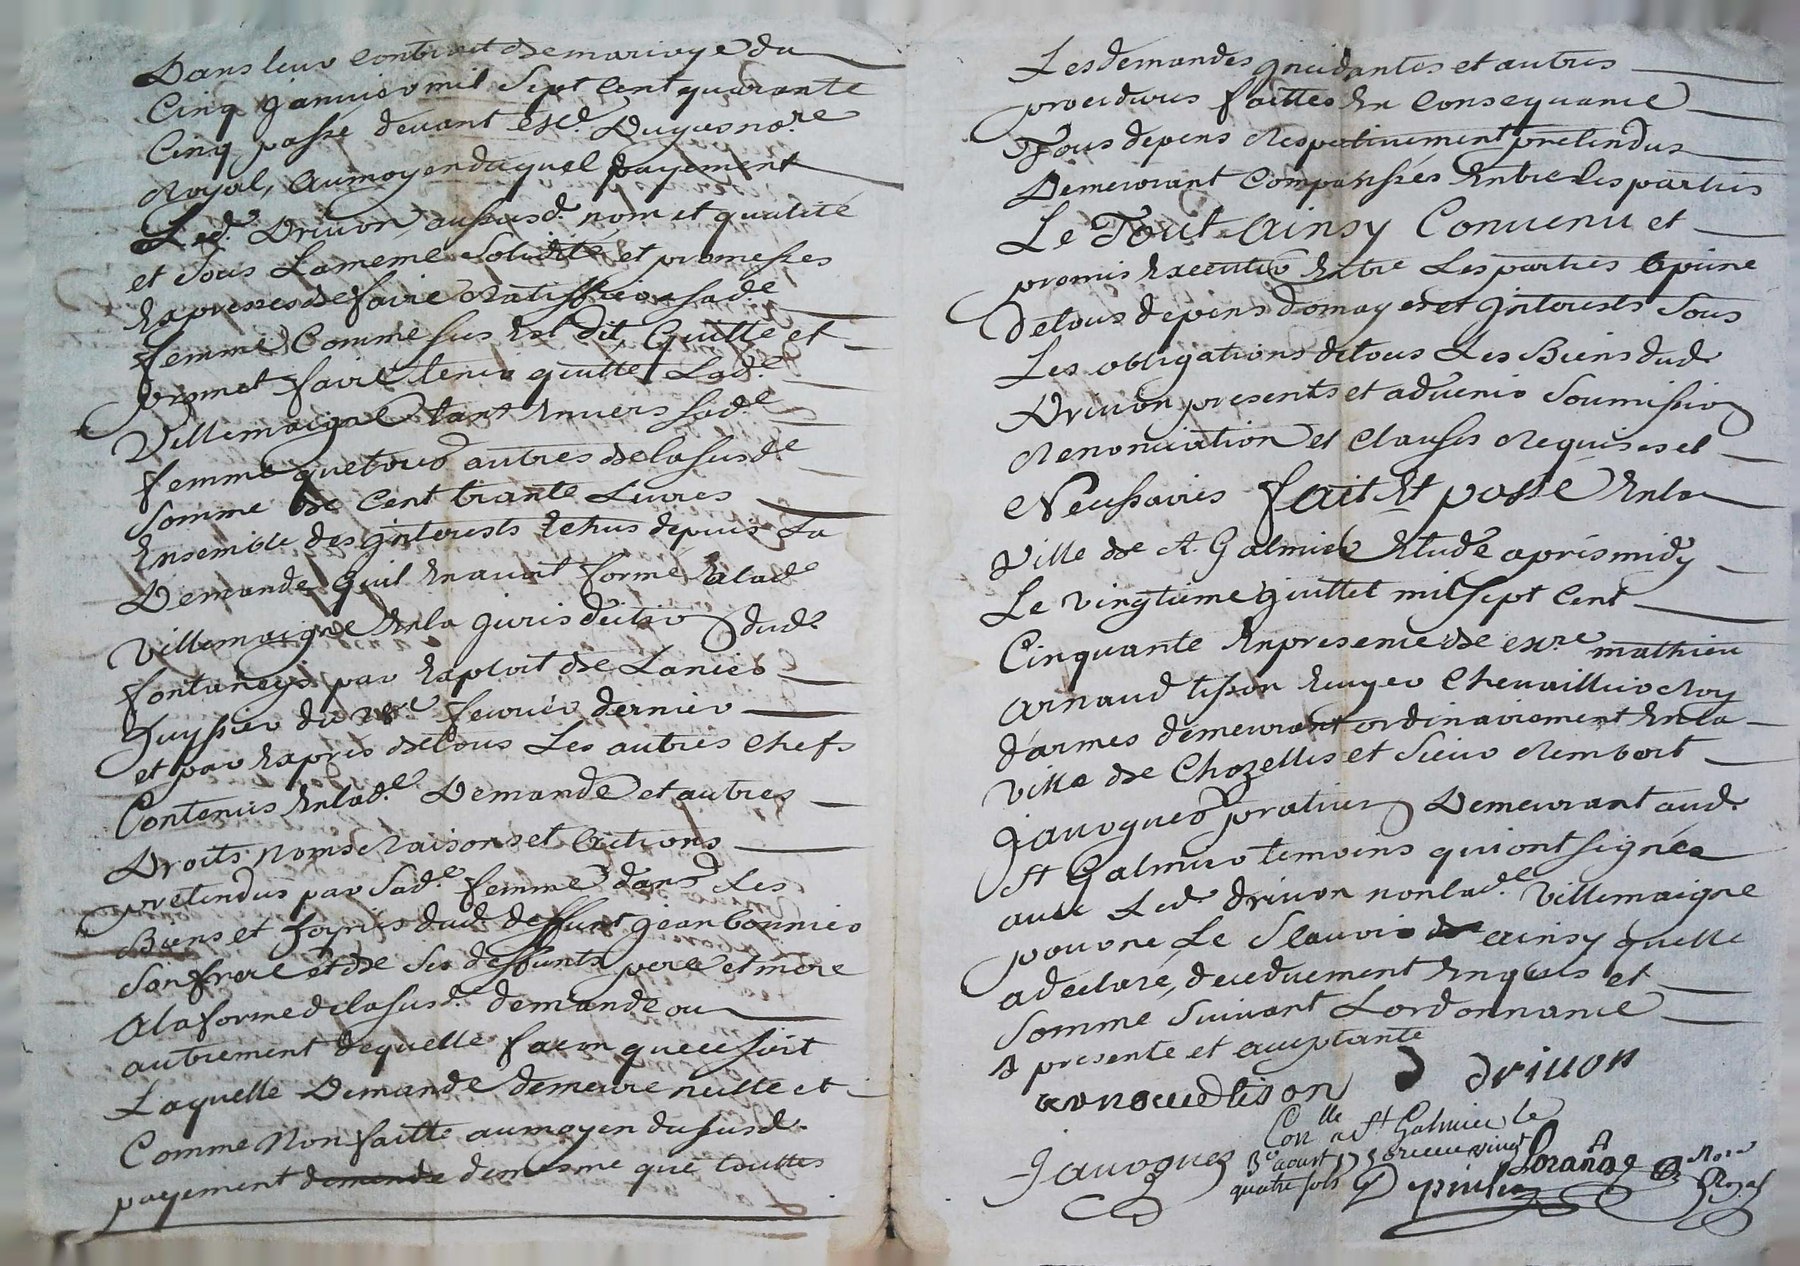 Dans leur contract de mariage du
Cinq janvier mil sept cent quarante
Cinq passé devant led. Duguesnore
Royal, aumoyen duquel payement
Led. Drivon aususd. nom et qualité
et sous Lameme solidité et promesses
Expresses de faire Ratiffier asad.e
femme Comme sus Est dit, Quitte et
promet faire tenir quitte Lad.e
Villemaigne tant Envers sad.e
femme que tous autres de lasusd.e
somme de Cent trante Livres
Ensemble des jnterests Echus depuis La
Demande quil Enavoit formé alad.e
Villemaigne Enla jurisdiction dud.
fontaneys par Exploit de Lanier
huyssier du 28.re fevrier dernier
et par Exprès de tous Les autres chefs
Contenus Enlad.e Demande et autres
Droits noms Raisons et Actions
pretendus par Sad.e femme dans Les
Biens et hoyries dud. deffunt jean bonnier
son frere et de Ses deffunts pere et mere
Ala forme de lasusd. demande ou
autrement de quelle facon que ce soit
Laquelle Demande demeure nulle et
Comme Non faitte aumoyen dususd.
payement demande demesme que touttes
Les demandes jncidantes et autres
procedures faittes En Consequance
Tous depens Respectivement pretendus
Demeurant Compansses Entre les parties
Le Tout Ainsy Convenu et
promis Executer Entre Les parties apeine
De tous depens domages et jnterests Sous
Les obligations de tous Les Biens dud.
Drivon presents et advenir Soumission
Renonciation et Clauses Requises et
Necessaires fait Et passé Enla
Ville de St. Galmier Etude apres midy
Le vingtieme juillet mil sept Cent
Cinquante Enpresence de mathieu
Arnaud tisson Ecuyer Chevaillier Roy
d'armes demeurant ordinairement Enla
Ville de Chazelles et Sieur Rembert
Javogues praticien Demeurant aud.
St Galmier temoins qui ont signés
avec Led. drivon non lad.e Villemaigne
pour ne Le Scavoir de ainsy quelle
adeclaré, de ce duement Enquis et
Somme Suivant Lordonnance
presente et acceptante
arnaud tison Drivon
Con.lle a St Galmier le
Javogues aoust 1750 receu vingt
quatre sols Depinha
Royal